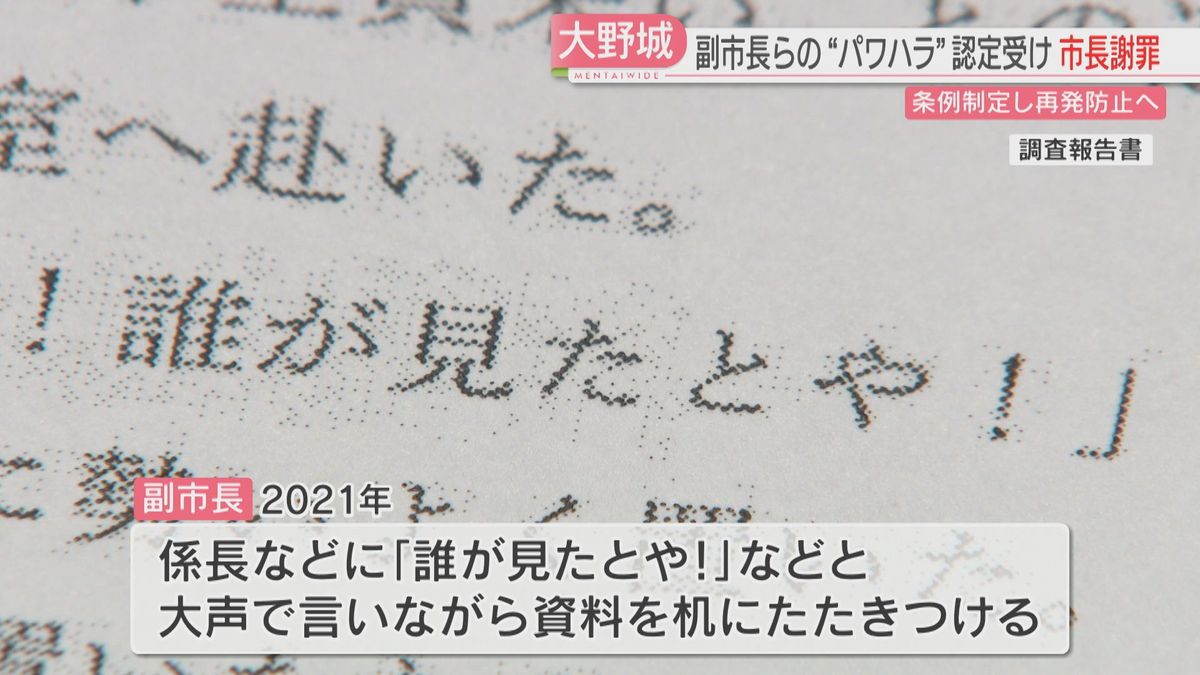 大野城
MENTAIWIDE
副市長らの“パワハラ”認定受け 市長謝罪
条例制定し再発防止へ
調査報告書
へ赴いた。
！誰が見たとや！」
副市長 2021年
係長などに「誰が見たとや！」などと
大声で言いながら資料を机にたたきつける